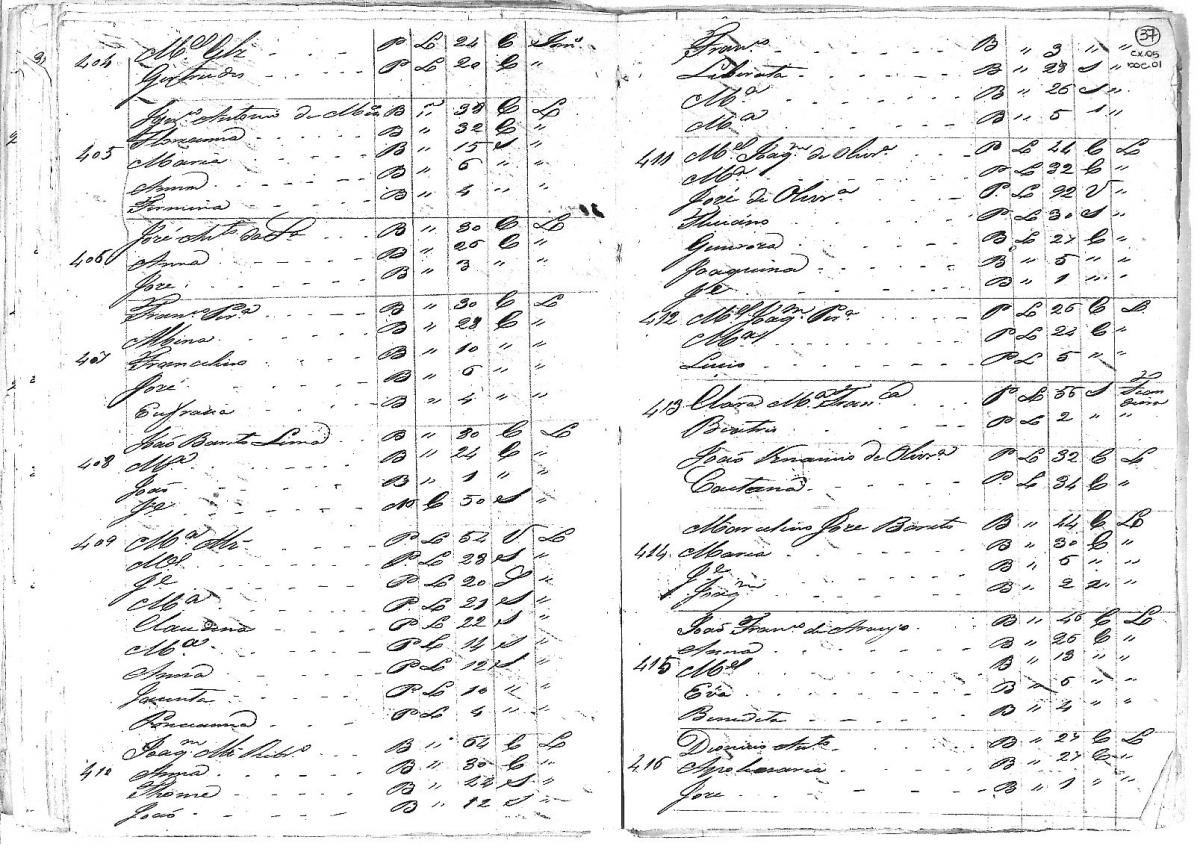 404 M.el Glz P L 24 C
Gertrudes P L 20 C "
Antonio da B " 38 C L
Floreanna B " 32 C "
405 Maria B " 15 S "
Anna B " 6 " "
Firmina B " 4 " "
José Ant.o da S.a B " 30 C L
406 Anna B " 26 C "
José B " 3 " "
Fran.co Per.a B " 30 C L
Mina B " 28 C "
407 Francelino B " 10 " "
José B " 6 " "
Eufrazia B " 4 " "
João Barreto Lima B " 30 C L
408 M.a B " 24 C "
João B " 1 " "
J.e N C 50 S "
409 M.a P L 54 V L
M.el P L 28 S "
J.e P L 20 S "
M.a P L 21 S "
Claudina P L 22 S "
M.a P L 14 S "
Anna P L 12 S "
Jacinta P L 10 " "
Ponceanna P L 4 " "
Joaq.m B " 64 C L
410 Anna B " 30 C "
Thome B " 24 S "
João B " 12 S "
37
CX.05
DOC.01
Fran.co B " 3 " "
Liberata B " 28 S "
M.a B " 26 S "
M.a B " 5 " "
411 M.el Joaq.m de Olivr.a P L 44 C L
M.a P L 32 C "
José de Olivr.a P L 92 V "
P L 30 S "
B L 27 C "
Joaquina B " 5 " "
J.e B " 1 " "
412 M.el Joaq.m Per.a P L 26 C L
M.a P L 24 C "
Lucio P L 5 " "
413 Clara M.a Fran.ca P L 56 S
Beatris P L 2 " "
João Venancio de Olivr.a P L 32 C L
Caetana P L 34 C "
Marcelino José Barreto B " 44 C L
414 Maria B " 30 C "
J.e B " 6 " "
Joaq.m B " 2 " "
João Fran.co de Araujo B " 46 C L
Anna B " 26 C "
415 M.el B " 13 " "
Eva B " 6 " "
Benedeta B " 4 " "
Dionizio Ant.o B " 27 C L
416 Apolinaria B " 27 C "
José B " 1 " "